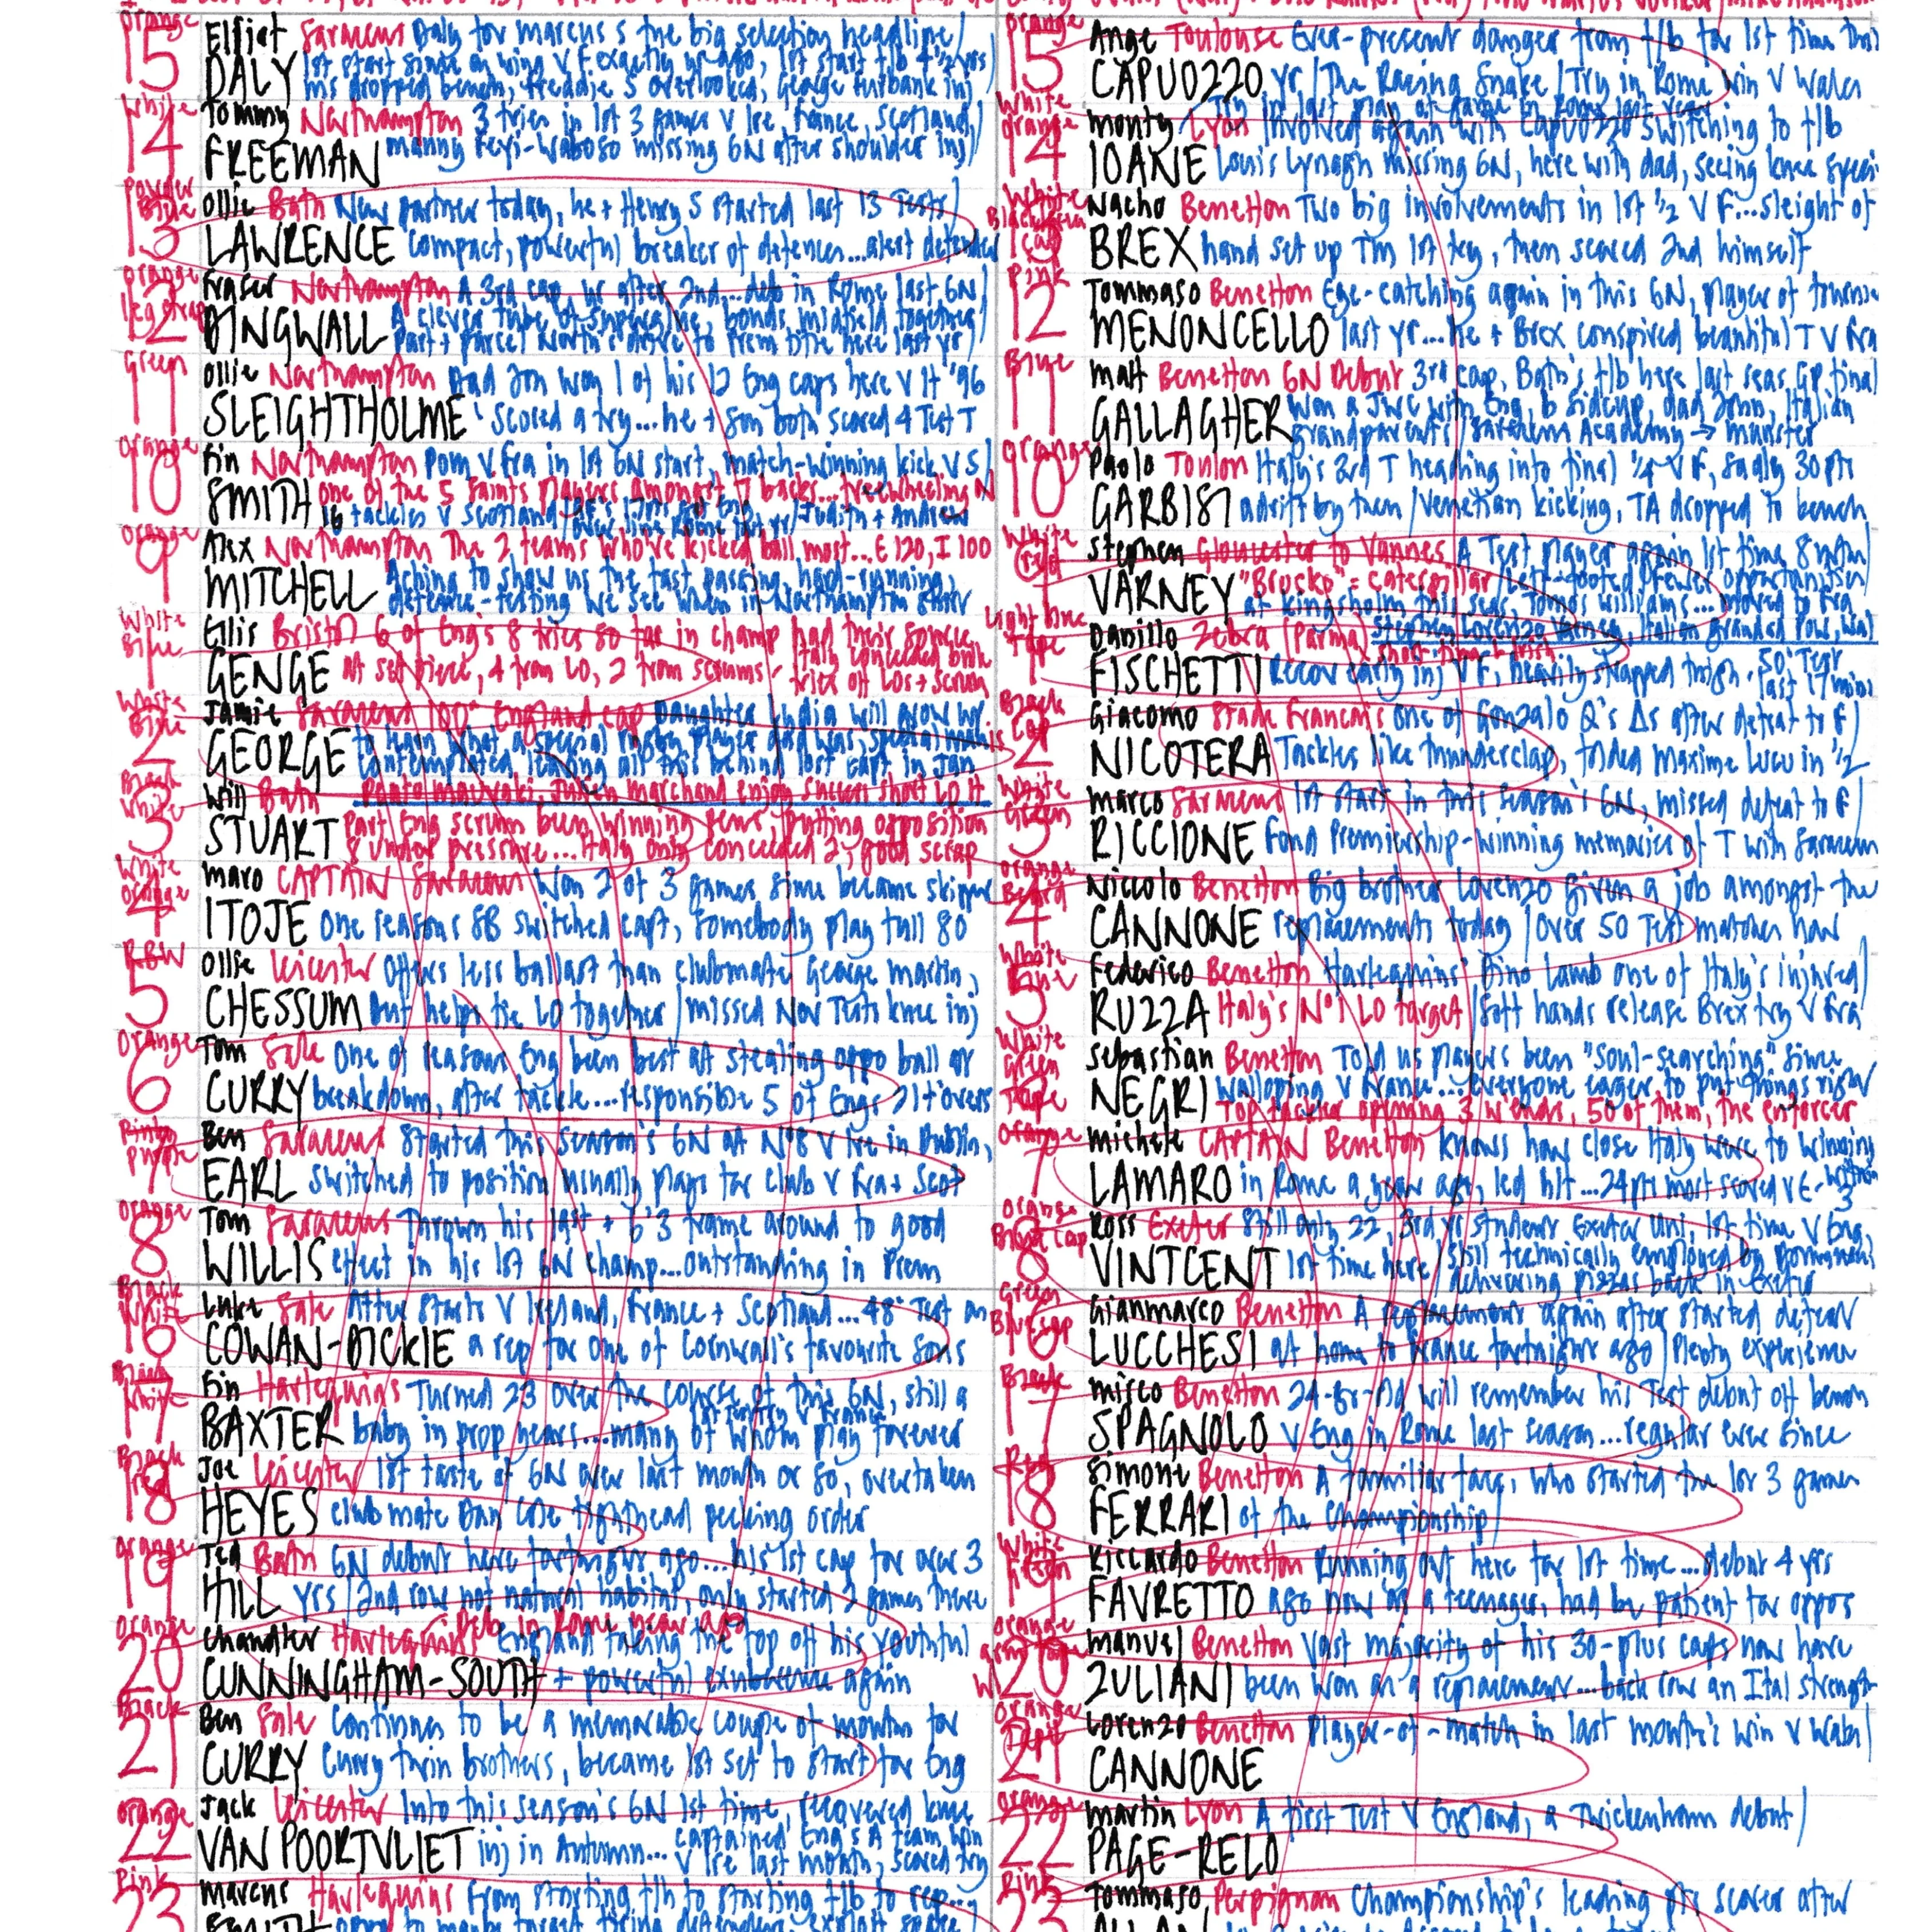 orange
15
Elliot Saracens Daly for Marcus S the big selection headline/
DALY 1st start since on wing v F exactly yr ago, 1st start f/b 4 1/2 yrs
ms dropped bench, Freddie S overlooked, George Furbank inj
White
14
Tommy Northampton 3 tries in 1st 3 games v Ire, France, Scotland/
FREEMAN Manny Feyi-Waboso missing 6N after shoulder inj
Powder Blue
13
Ollie Bath New partner today, he + Henry S started last 13 Tests/
LAWRENCE compact, powerful breaker of defences...alert defender
orange leg strap
12
Fraser Northampton A 3rd cap, yr after 2nd...deb in Rome last 6N/
DINGWALL A clever bonds midfield together/
Part + parcel North's drive to Prem title here last yr/
Green
11
Ollie Northampton Dad Jon won 1 of his 12 Eng caps here v It '96
SLEIGHTHOLME Scored a try...he + son both scored 4 Test T
orange
10
Fin Northampton Pom v Fra in 1st 6N start, match-winning kick v S/
SMITH one of the 5 Saints players amongst 7 backs...freewheeling N
16 tackles v Scotland/
orange
9
Alex Northampton The 2 teams who've kicked ball most...E 120, I 100
MITCHELL Aching to show us the fast passing, hard-running,
defence-testing we see when in Northampton shirt
White Blue
1
Ellis Bristol 6 of Eng's 8 tries so far in champ had their source
GENGE at set piece, 4 from LO, 2 from scrums - Italy conceded both
tries off LOs + Scrum
White Blue
2
Jamie Saracens 100th England cap Daughter India will grow up
GEORGE to learn what a special rugby player dad was, special man
contemplated leaving all this behind lost capt in Jan
Black White
3
Will Bath Peato Mauvaka, Julien Marchand enjoy success short LO It
STUART Part Eng scrum been winning pens, putting opposition
under pressure...Italy only conceded 2, good scrap
White orange
4
Maro CAPTAIN Saracens Won 2 of 3 games since became skipper
ITOJE One reasons SB switched capt, somebody play full 80
RBW
5
Ollie Leicester Offers less ballast than clubmate George Martin,
CHESSUM but helps tie LO together/missed Nov Tests knee inj
Orange
6
Tom Sale One of reasons Eng been best at stealing oppo ball at
CURRY breakdown, after tackle....responsible 5 of Eng's 21 t'overs
Pink purple
7
Ben Saracens Started this season's 6N at No8 v Ire in Dublin,
EARL switched to position usually plays for club v Fra + Scot
Orange
8
Tom Saracens Thrown his 6'3 frame around to good
WILLIS effect in his 1st 6N champ...outstanding in Prem
Black White
16
Luke Sale After starts v Ireland, France + Scotland...48th Test as
COWAN-DICKIE a rep for one of Cornwall's favourite sons
Black White
17
Fin Harlequins Turned 23 over the course of this 6N, still a
BAXTER baby in prop years....many of whom play forever
Black Red
18
Joe Leicester 1st taste of 6N over last month or so, overtaken
HEYES clubmate Dan Cole tighthead pecking order
orange
19
Ted Bath 6N debut here fortnight ago...his 1st cap for over 3
HILL yrs/2nd row not natural habitat, only started 2 games there
orange
20
Chandler Harlequins Deb in Rome year ago England taking the top off his youthful
CUNNINGHAM-SOUTH + powerful exuberance again
Black
21
Ben Sale Continues to be a memorable couple of months for
CURRY Curry twin brothers, became 1st set to start for Eng
orange
22
Jack Leicester Into this season's 6N 1st time, recovered knee
VAN POORTVLIET inj in Autumn... captained Eng's A team win
v Ire last month, scored try
Pink
23
Marcus Harlequins From starting f/h to starting f/b to rep...
orange
15
Ange Toulouse Ever-present danger from f/b for 1st time this
CAPUOZZO yr/The Racing Snake/Try in Rome win v Wales
Try in last play of game in Rome last year
White orange
14
Monty Lyon Involved again with Capuozzo switching to f/b
IOANE Louis Lynagh missing 6N, here with dad, seeing knee
White Black/Green cap
13
Nacho Benetton Two big involvements in 1st 1/2 v F...sleight of
BREX hand set up Tm 1st try, then scored 2nd himself
Pink
12
Tommaso Benetton Eye-catching again in this 6N, player of
MENONCELLO last yr...he + Brex conspired beautiful T v Fra
Blue
11
Matt Benetton 6N Debut 3rd cap, Bath's f/b here last seas GP final
GALLAGHER Won a JWC with Eng, b Sidcup, dad John, Italian
grandparents/Saracens Academy → Munster
orange
10
Paolo Toulon Italy's 3rd T heading into final 1/4 v F, sadly 30pts
GARBISI adrift by then/Venetian kicking, TA dropped to bench
White
9
Stephen Gloucester to Vannes A Test player again 1st time 8 mths/
VARNEY "Bruско" = caterpillar left-footed/fewer opportunities
at Kingsholm this seas, Tomos Williams...moved to Fra
Light blue tape
1
Danilo Zebra (Parma) Stephen Lorenzo Varney, Italian grandad
FISCHETTI Recov early inj v F, heavily strapped thigh. 50th Test
last 17 mins
Black Cap
2
Giacomo Stade Francais One of Gonzalo Q's Δs after defeat to F/
NICOTERA Tackles like thunderclap, folded Maxime Lucu in 1/2
White Green
3
Marco Saracens 1st start in this season's 6N, missed defeat to F/
RICCIONE Fond Premiership-winning memories of T with Saracens
orange Beard
4
Niccolo Benetton Big brother Lorenzo given a job amongst the
CANNONE replacements today/Over 50 Test matches now
White
5
Federico Benetton Harlequins' Dino Lamb one of Italy's injured/
RUZZA Italy's No1 LO target/Soft hands release Brex try v Fra
White Green Tape
6
Sebastian Benetton Told us players been "soul-searching" since
NEGRI walloping v France....everyone eager to put things right/
Top tackler opening 3 w'ends, 50 of them, the enforcer
Orange
7
Michele CAPTAIN Benetton Knows how close Italy were to winning
LAMARO in Rome a year ago, led h/t...24pts most scored v E - within
3
orange Cap
8
Ross Exeter Still only 22, 3rd yr student Exeter Uni, 1st time v Eng,
VINTCENT 1st time here/still technically employed by
delivering pizzas back in Exeter
Green Cap
16
Gianmarco Benetton A replacement again after started defeat
LUCCHESI at home to France fortnight ago/Plenty experience
Black
17
Mirco Benetton 24-yr-old will remember his Test debut off bench
SPAGNOLO v Eng in Rome last season...regular ever since
Red
18
Simone Benetton A familiar face, who started the 1st 3 games
FERRARI of the Championship/
White
19
Riccardo Benetton Running out here for 1st time...debut 4 yrs
FAVRETTO ago now as a teenager, had be patient for oppos
Orange
20
Manuel Benetton Vast majority of his 30-plus caps now have
ZULIANI been won as a replacement...back row an Ital strength
Orange
21
Lorenzo Benetton Player-of-match in last month's win v Wales/
CANNONE
orange
22
Martin Lyon A first Test v England, a Twickenham debut/
PAGE-RELO
Pink
23
Tommaso Perpignan Championship's leading pts scorer after
ALLAN